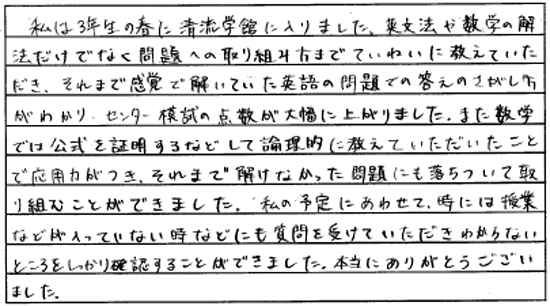 私は3年生の春に清流学館に入りました。英文法や数学の解
法だけでなく問題への取り組み方までていねいに教えていた
だき、それまで感覚で解いていた英語の問題での答えのさがし方
がわかり、センター模試の点数が大幅に上がりました。また数学
では公式を証明するなどして論理的に教えていただいたこと
で応用力がつき、それまで解けなかった問題にも落ちついて取
り組むことができました。私の予定にあわせて、時には授業
などが入っていない時などにも質問を受けていただきわからない
ところをしっかり確認することができました。本当にありがとうござい
ました。